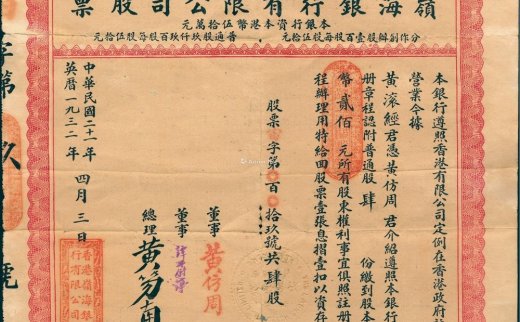 嶺海銀行有限公司股票
本銀行資本港幣伍拾萬元
分作創辦股壹百股每股伍拾元 普通股玖仟玖百股每股伍拾元
本銀行遵照香港有限公司定例在香港政府
營業今據
黃滾經君憑黃仿周君介紹遵照本銀行
册章程認附普通股肆 份繳到股本
幣貳佰 元所有股東權利事宜俱照註册
程辦理用特給囬股票壹張息摺壹扣以資存
股票 字第 百 拾玖號共肆股
董事 黃仿周
董事
總理 黃笏南
中華民國二十一年 四月三日
英曆一九三二年
香港嶺海銀行有限公司
字第 玖 號